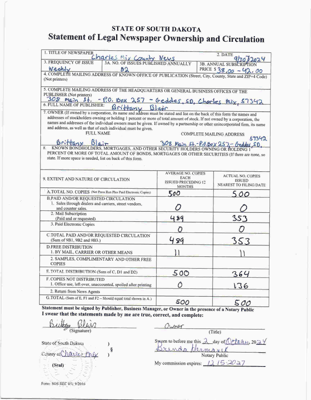 STATE OF SOUTH DAKOTA
Statement of Legal Newspaper Ownership and Circulation
1. TITLE OF NEWSPAPER
Charles Mix County News
2. DATE
9/30/2024
3. FREQUENCY OF ISSUE
Weekly
3A. NO. OF ISSUES PUBLISHED ANNUALLY
52
3B. ANNUAL SUBSCRIPTION
PRICE $ 38.00 - 42.00
4. COMPLETE MAILING ADDRESS OF KNOWN OFFICE OF PUBLICATION (Street, City, County, State and ZIP+4 Code)
(Not printers)
5. COMPLETE MAILING ADDRESS OF THE HEADQUARTERS OR GENERAL BUSINESS OFFICES OF THE
PUBLISHER (Not printer)
308 Main St. - P.O. Box 257 - Geddes, SD, Charles Mix, 57342
6. FULL NAME OF PUBLISHER:
Brittany Blair
7. OWNER (If owned by a corporation, its name and address must be stated and
FULL NAME
COMPLETE MAILING ADDRESS
57342
Brittany Blair
308 Main St. P.O. Box 257 - Geddes, SD,
8. KNOWN BONDHOLDERS, MORTGAGEES, AND OTHER SECURITY HOLDERS OWNING OR HOLDING 1
PERCENT OR MORE OF TOTAL AMOUNT OF BONDS, MORTGAGES OR OTHER SECURITIES (If there are none, so
state. If more space is needed, list on back of this form.
9. EXTENT AND NATURE OF CIRCULATION
AVERAGE NO. COPIES
EACH
ISSUED PRECEDING 12
MONTHS
ACTUAL NO. COPIES
ISSUED
NEAREST TO FILING DATE
A. TOTAL NO. COPIES
500
500
B. PAID AND/OR REQUESTED CIRCULATION
1. Sales through dealers and carriers, street vendors,
and counter sales.
0
0
2. Mail Subscription
(Paid and/or requested)
489
353
3. Paid Electronic Copies
0
0
C. TOTAL PAID AND/OR REQUESTED CIRCULATION
(Sum of 9B1, 9B2 and 9B3.)
489
353
D. FREE DISTRIBUTION
1. BY MAIL, CARRIER OR OTHER MEANS
11
11
2. SAMPLES, COMPLIMENTARY AND OTHER FREE
COPIES
E. TOTAL DISTRIBUTION (Sum of C, D1 and D2)
500
364
F. COPIES NOT DISTRIBUTED
1. Office use, left over, unaccounted, spoiled after printing
0
136
2. Return from News Agents
G. TOTAL (Sum of E, F1 and F2 – Should equal total shown in A.)
500
500
Statement must be signed by Publisher, Business Manager, or Owner in the presence of a Notary Public
I swear that the statements made by me are true, correct, and complete:
Brittany Blair
(Signature)
Owner
(Title)
State of South Dakota
County of Charles Mix
Sworn to before me this 2 day of October 2024
Notary Public
(Seal)
My commission expires: